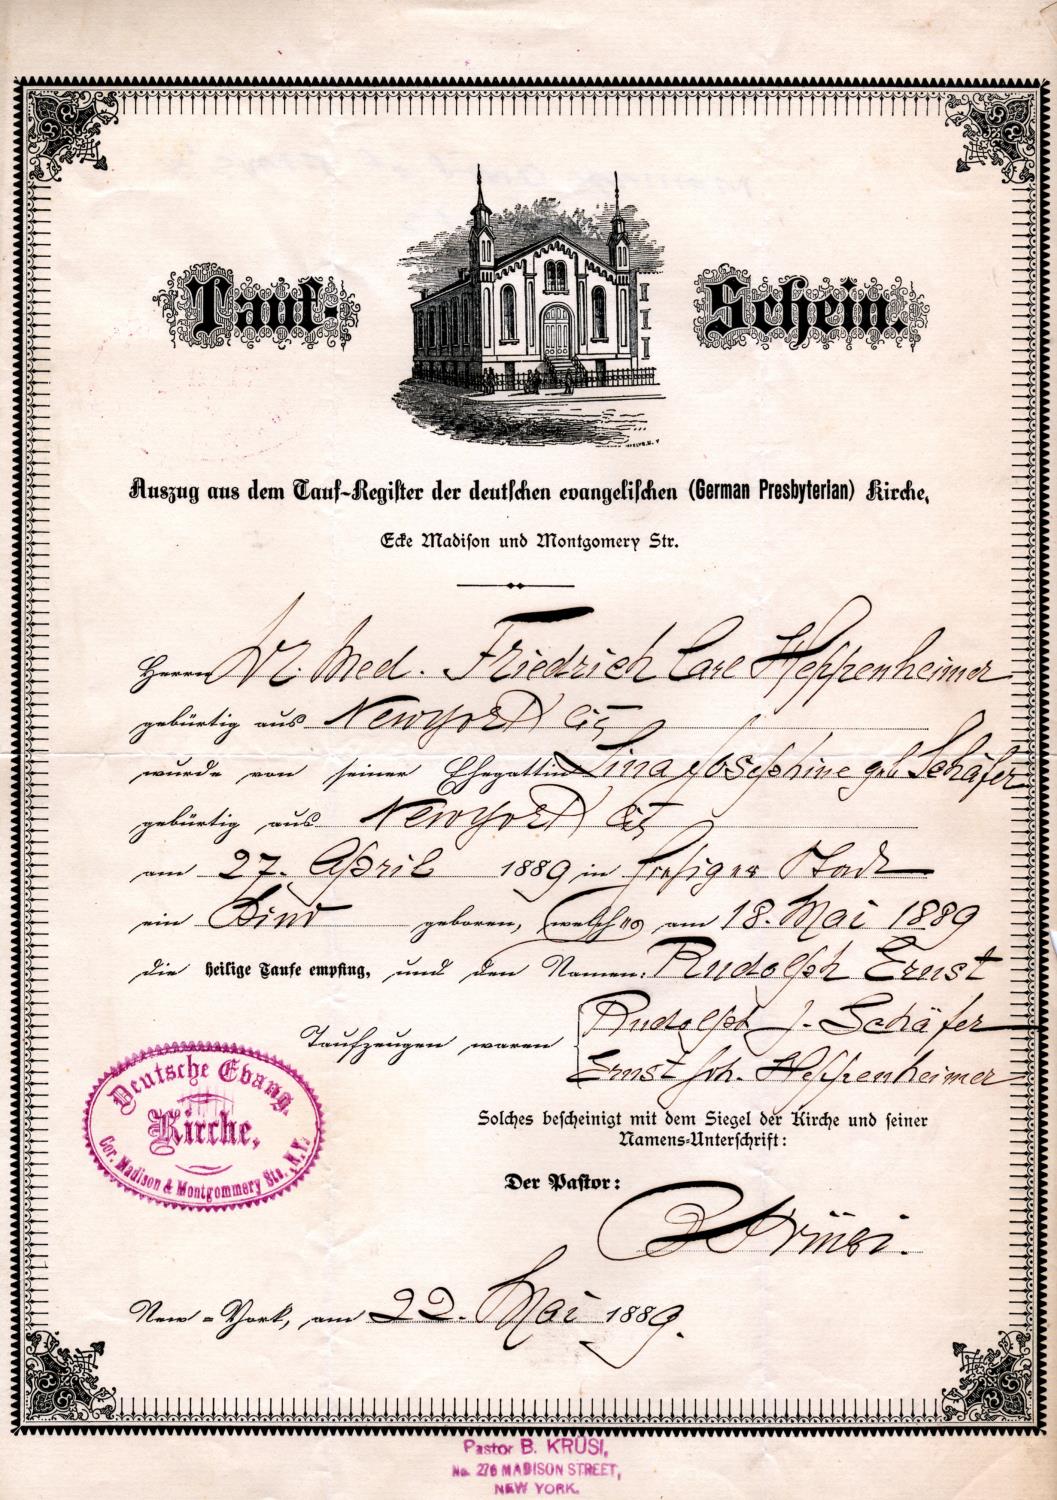 Tauf-Schein.
Auszug aus dem Tauf-Register der deutschen evangelischen (German Presbyterian) Kirche,
Ecke Madison und Montgomery Str.
Herrn Dr. Med. Friedrich Carl Heppenheimer
gebürtig aus Newyork City
wurde von seiner Ehegattin Lina Josephine geb. Schäfer
gebürtig aus Newyork City
am 27. April 1889 in hiesiger Stadt
ein Kind geboren, welches am 18. Mai 1889
die heilige Taufe empfing, und den Namen: Rudolph Ernst
Taufzeugen waren Rudolph J. Schäfer
Ernst Joh. Heppenheimer
Solches bescheinigt mit dem Siegel der Kirche und seiner
Namens-Unterschrift:
Deutsche Evang.
Kirche,
Cor. Madison & Montgommery Sts. N.Y.
Der Pastor:
B Krüsi.
New-York, am 22. Mai 1889.
Pastor B. KRÜSI,
No. 276 MADISON STREET,
NEW YORK.